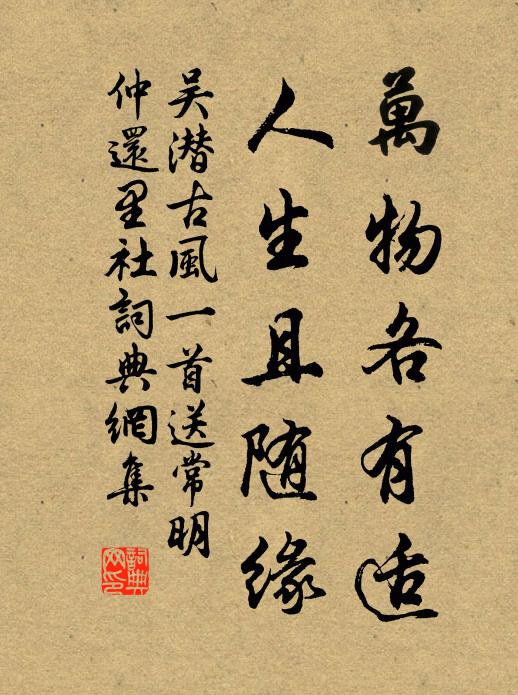 萬物各有适
人生且随緣
吴潜古風一首送常明
仲還里社詞典網集
詞典网印